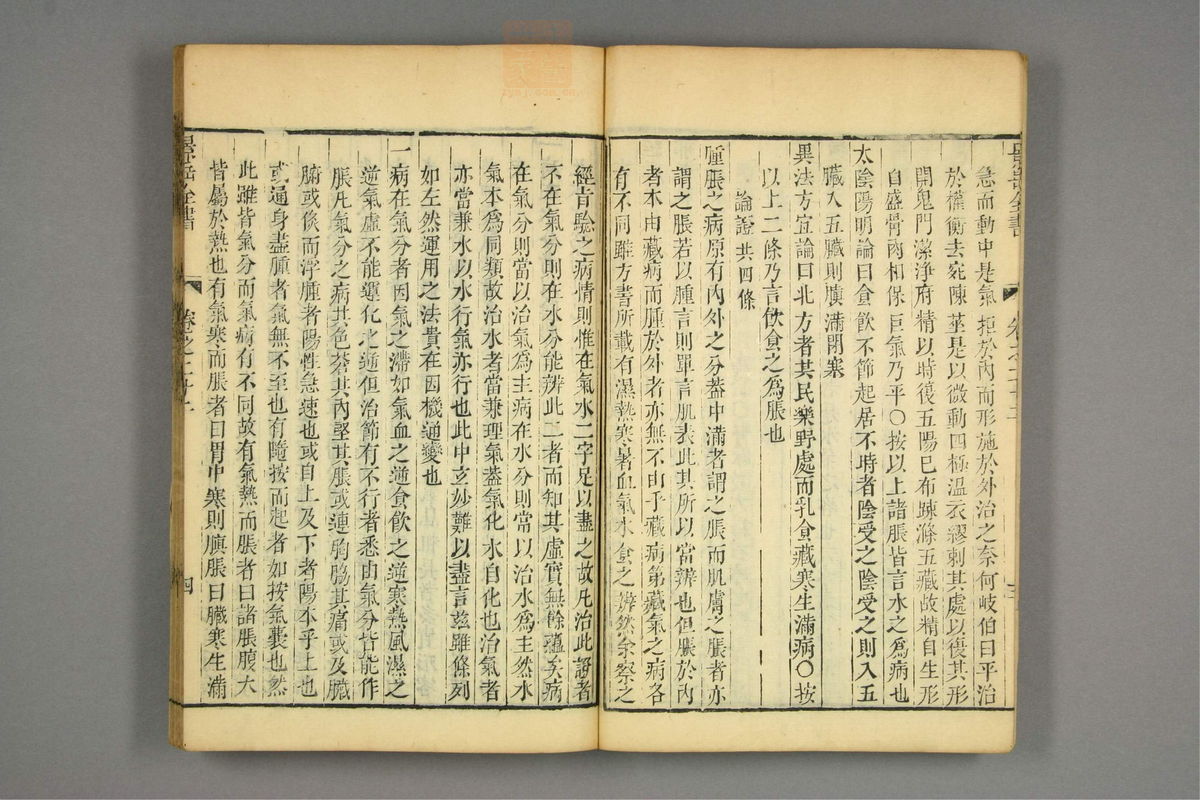 景岳全書 卷之二十二 三
急而動中是氣拒於內而形施於外治之奈何岐伯曰平治
於權衡去宛陳莝是以微動四極溫衣繆刺其處以復其形
開鬼門潔淨府精以時復五陽巳布疎滌五藏故精自生形
自盛骨肉相保巨氣乃平〇按以上諸脹皆言水之爲病也
太陰陽明論曰食飲不節起居不時者陰受之陰受之則入五
臟入五臟則䐜滿閉塞
異法方宜論曰北方者其民樂野處而乳食藏寒生滿病〇按
以上二條乃言飲食之爲脹也
論證共四條
腫脹之病原有內外之分葢中滿者謂之脹而肌膚之脹者亦
謂之脹若以腫言則單言肌表此其所以當辨也但脹於內
者本由藏病而腫於外者亦無不由乎藏病第藏氣之病各
有不同雖方書所載有濕熱寒暑血氣水食之辨然余察之
經音驗之病情則惟在氣水二字足以盡之故凡治此證者
不在氣分則在水分能辨此二者而知其虛實無餘蘊矣病
在氣分則當以治氣爲主病在水分則當以治水爲主然水
氣本爲同類故治水者當兼理氣葢氣化水自化也治氣者
亦當兼水以水行氣亦行也此中玄妙難以盡言茲雖條列
如左然運用之法貴在因機通變也
一病在氣分者因氣之滯如氣血之逆食飲之逆寒熱風濕之
逆氣虛不能運化之逆但治節有不行者悉由氣分皆能作
脹凡氣分之病其色蒼其內堅其脹或連胸脇其痛或及臟
腑或倏而浮腫者陽性急速也或自上及下者陽本乎上也
或通身盡腫者氣無不至也有隨按而起者如按氣囊也然
此雖皆氣分而氣病有不同故有氣熱而脹者曰諸脹腹大
皆屬於熱也有氣寒而脹者曰胃中寒則䐜脹曰臟寒生滿
景岳全書 卷之二十二 四